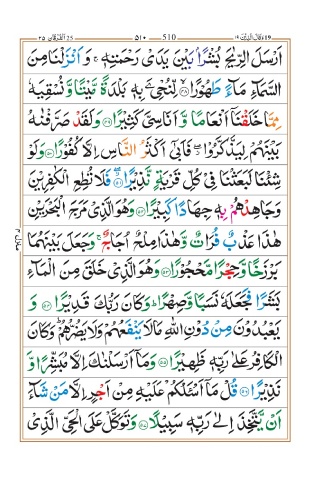 وقال الذين ١٩ 510 ٥١٠ الفرقان ٢٥
اَرْسَلَ الرِّيٰحَ بُشْرًۢا بَيْنَ يَدَيْ رَحْمَتِهٖ ۚ وَاَنْزَلْنَا مِنَ
السَّمَآءِ مَآءً طَهُوْرًا ﴿٤٨﴾ لِّنُحْيِۦَ بِهٖ بَلْدَةً مَّيْتًا وَّنُسْقِيَهٗ
مِمَّا خَلَقْنَآ اَنْعَامًا وَّاَنَاسِيَّ كَثِيْرًا ﴿٤٩﴾ وَلَقَدْ صَرَّفْنٰهُ
بَيْنَهُمْ لِيَذَّكَّرُوْا ۖ فَاَبٰٓى اَكْثَرُ النَّاسِ اِلَّا كُفُوْرًا ﴿٥٠﴾ وَلَوْ
شِئْنَا لَبَعَثْنَا فِيْ كُلِّ قَرْيَةٍ نَّذِيْرًا ﴿٥١﴾ فَلَا تُطِعِ الْكٰفِرِيْنَ
وَجَاهِدْهُمْ بِهٖ جِهَادًا كَبِيْرًا ﴿٥٢﴾ وَهُوَ الَّذِيْ مَرَجَ الْبَحْرَيْنِ
هٰذَا عَذْبٌ فُرَاتٌ وَّهٰذَا مِلْحٌ اُجَاجٌ ۚ وَجَعَلَ بَيْنَهُمَا
بَرْزَخًا وَّحِجْرًا مَّحْجُوْرًا ﴿٥٣﴾ وَهُوَ الَّذِيْ خَلَقَ مِنَ الْمَآءِ
بَشَرًا فَجَعَلَهٗ نَسَبًا وَّصِهْرًا ۗ وَكَانَ رَبُّكَ قَدِيْرًا ﴿٥٤﴾ وَ
يَعْبُدُوْنَ مِنْ دُوْنِ اللّٰهِ مَا لَا يَنْفَعُهُمْ وَلَا يَضُرُّهُمْ ۗ وَكَانَ
الْكَافِرُ عَلٰى رَبِّهٖ ظَهِيْرًا ﴿٥٥﴾ وَمَآ اَرْسَلْنٰكَ اِلَّا مُبَشِّرًا وَّ
نَذِيْرًا ﴿٥٦﴾ قُلْ مَآ اَسْـَٔلُكُمْ عَلَيْهِ مِنْ اَجْرٍ اِلَّا مَنْ شَآءَ
اَنْ يَّتَّخِذَ اِلٰى رَبِّهٖ سَبِيْلًا ﴿٥٧﴾ وَتَوَكَّلْ عَلَى الْحَيِّ الَّذِيْ